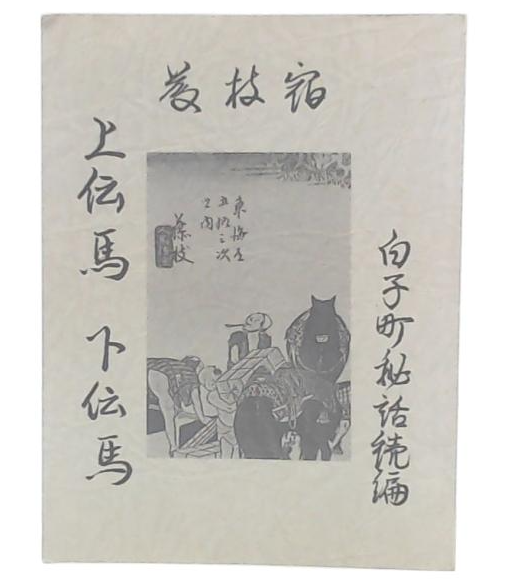 藤枝宿
白子町秘話続編
東海道
五拾三次
之内
藤枝
上伝馬 下伝馬